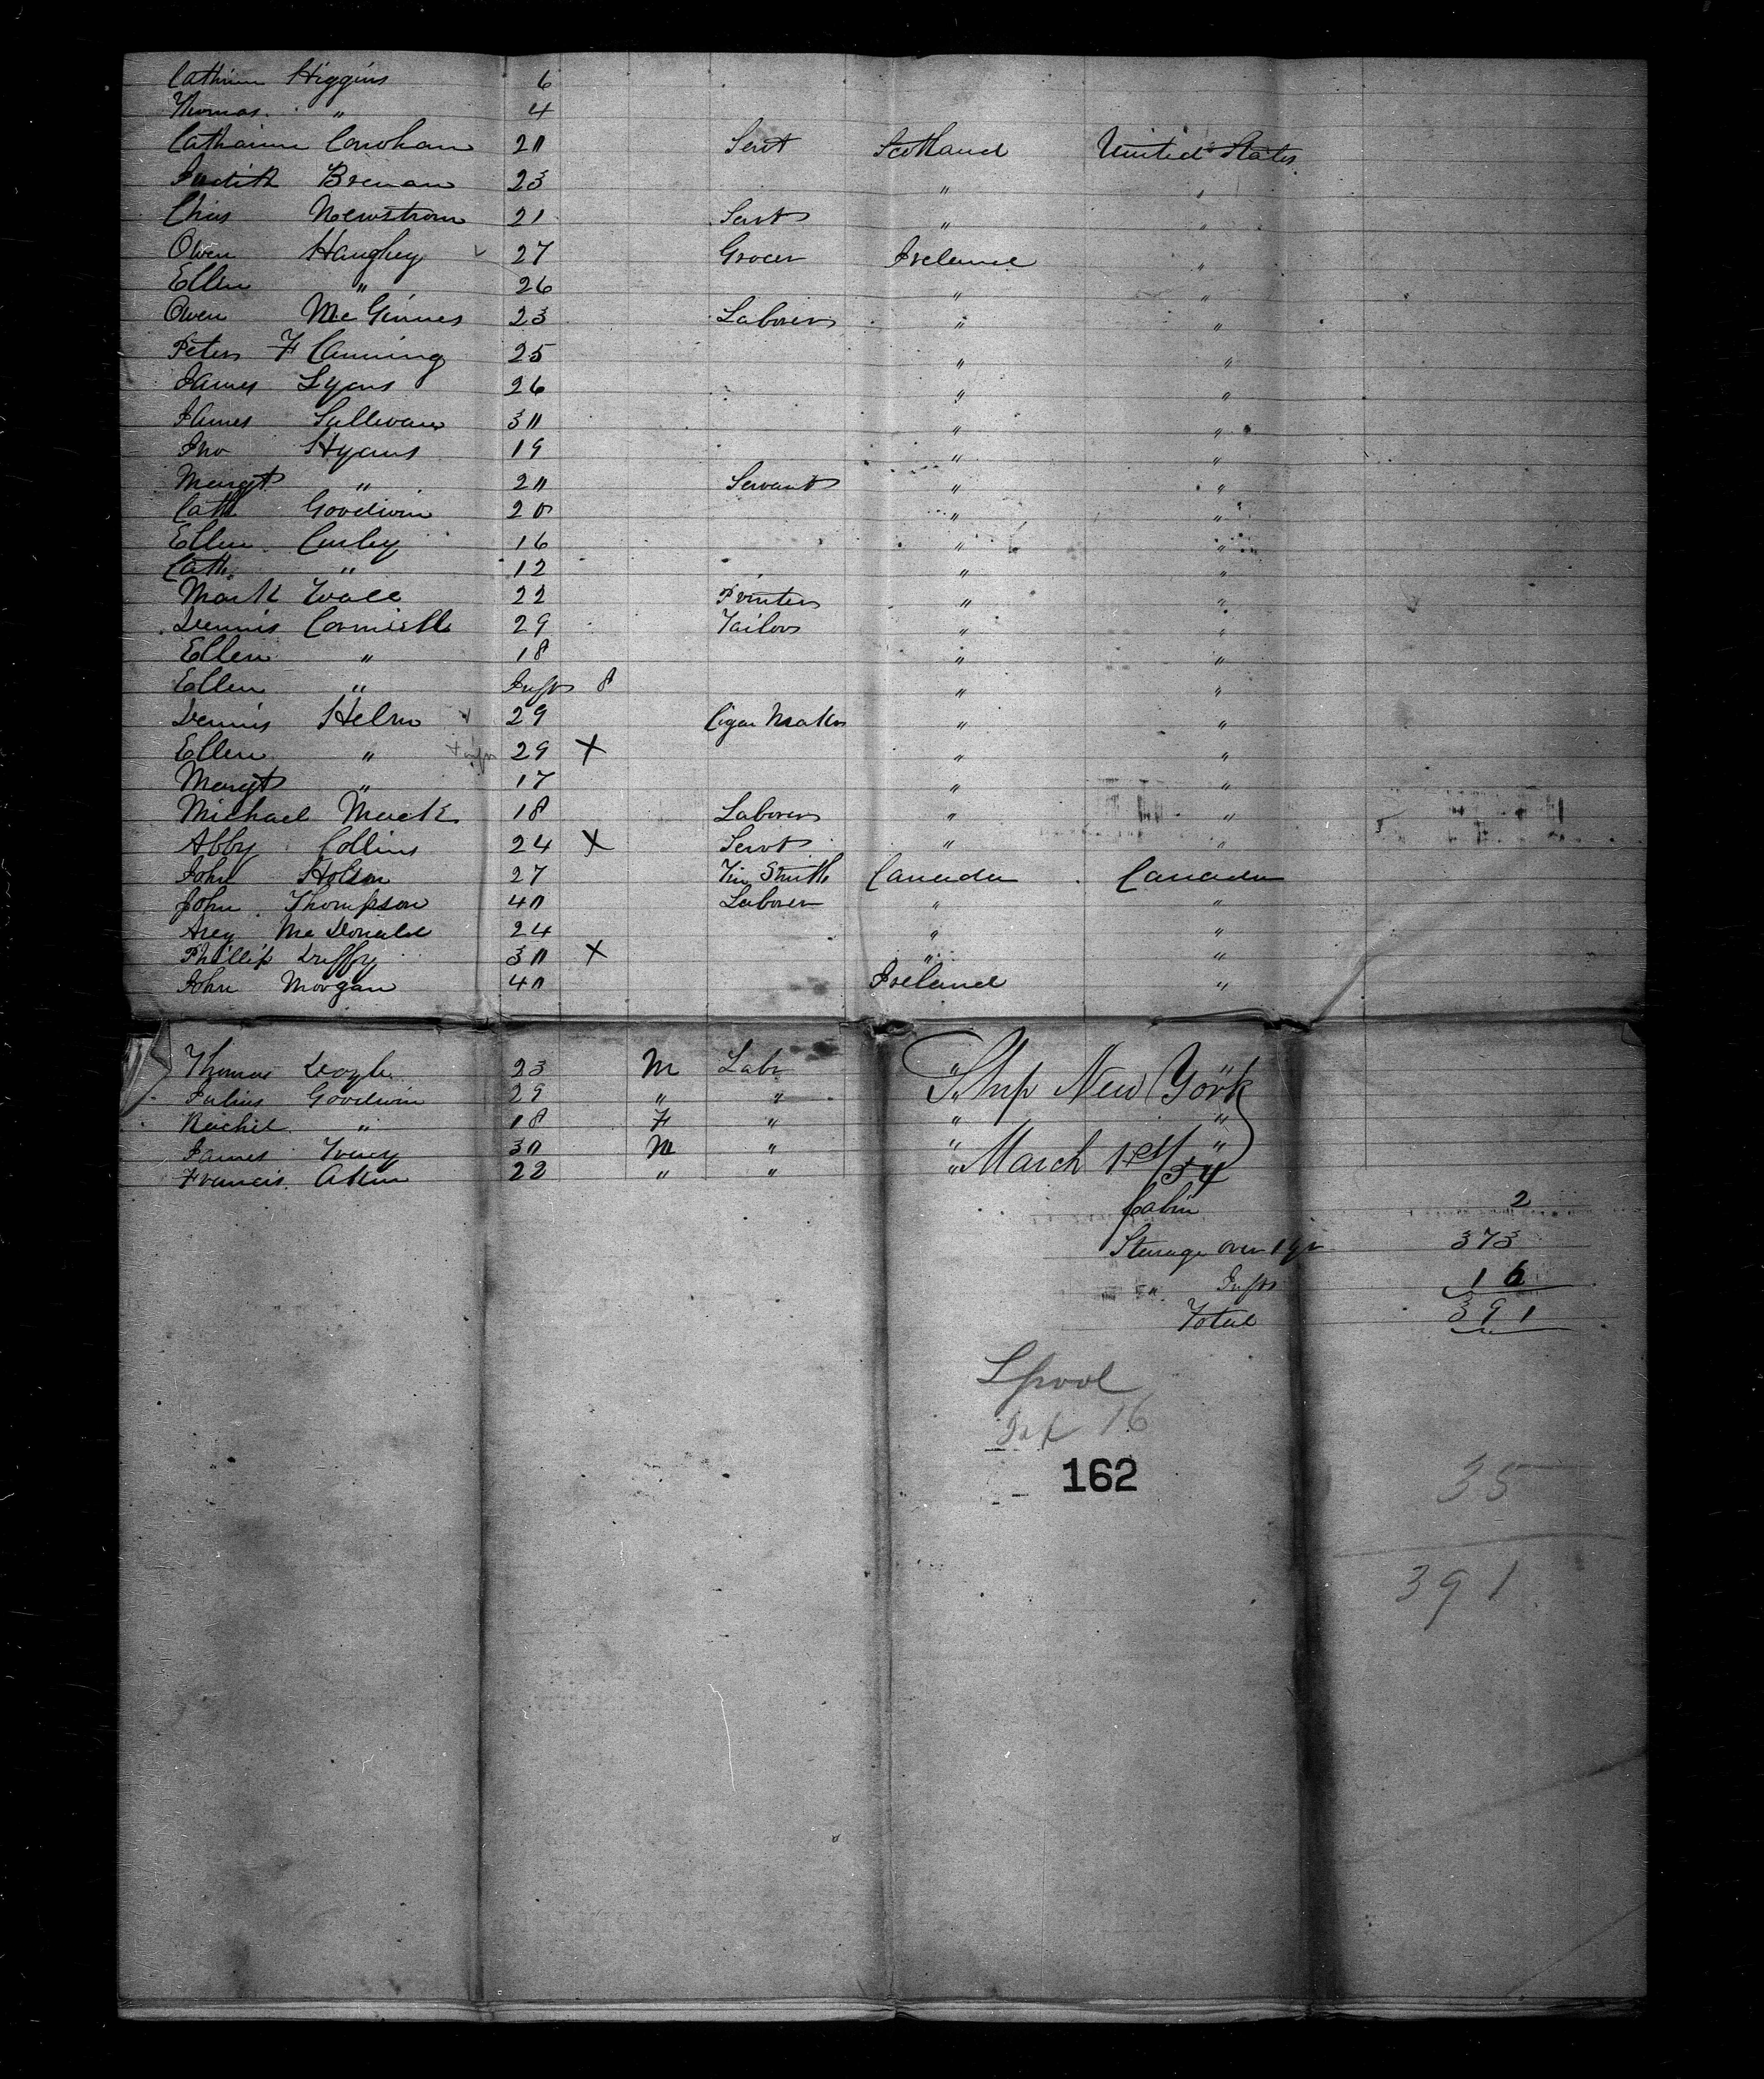 Cathrine Higgins 6
Thomas " 4
Catharine Conohan 20 Servt Scotland United States
Judith Brenan 23 " "
Chas Newstrom 21 Servt " "
Owen Haughey 27 Grocer Ireland "
Ellen " 26 " "
Owen McGinnes 23 Laborer " "
Peter F Canning 25 " "
James Lyons 26 " "
James Sullivan 30 " "
Jno Hyans 19 " "
Margt " 20 Servant " "
Cath Goodwin 20 " "
Ellen Curley 16 " "
Cath " 12 " "
Mark Wall 22 Printer " "
Dennis Cormick 29 Tailor " "
Ellen " 18 " "
Ellen " Inft 8 " "
Dennis Helm 29 Cigar Maker " "
Ellen " 29 X " "
Margt " 17 " "
Michael Mack 18 Laborer " "
Abby Collins 24 X Servt " "
John Holson 27 Tin Smith Canada Canada
John Thompson 40 Laborer " "
McDonald 24 " "
Phillip Duffy 30 X " "
John Morgan 40 Ireland "
Thomas Doyle 23 M Labr " "
Julius Goodwin 29 " " Ship New York
Rachel " 18 F " " "
James 30 M " " "
Francis 22 " " " March 1st/54
Cabin 2
Steerage over 1 yr 373
" Infts 16
Total 391
Lpool
16
162
35
391